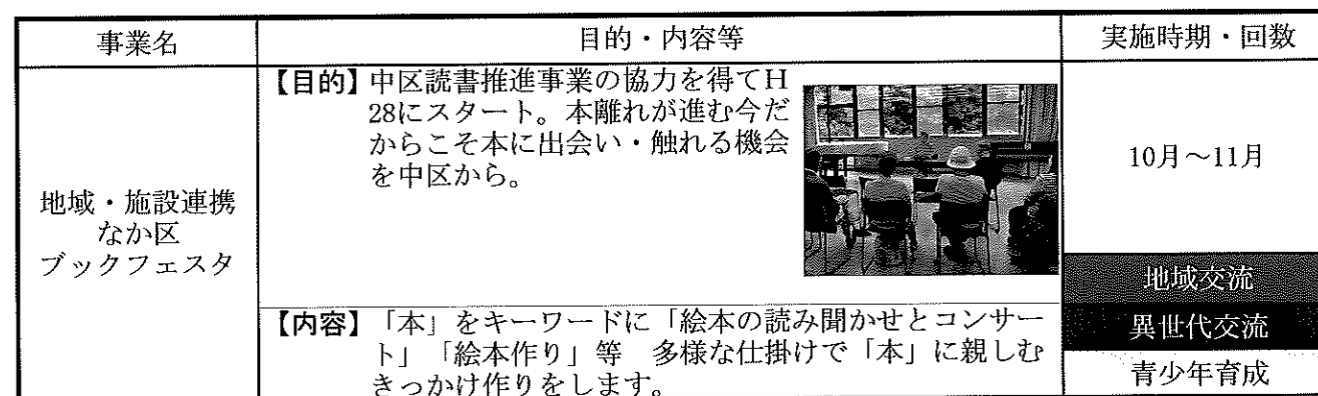 事業名
目的・内容等
実施時期・回数
地域・施設連携
なか区
ブックフェスタ
【目的】中区読書推進事業の協力を得てH
28にスタート。本離れが進む今だ
からこそ本に出会い・触れる機会
を中区から。
【内容】「本」をキーワードに「絵本の読み聞かせとコンサー
ト」「絵本作り」等　多様な仕掛けで「本」に親しむ
きっかけ作りをします。
10月～11月
地域交流
異世代交流
青少年育成